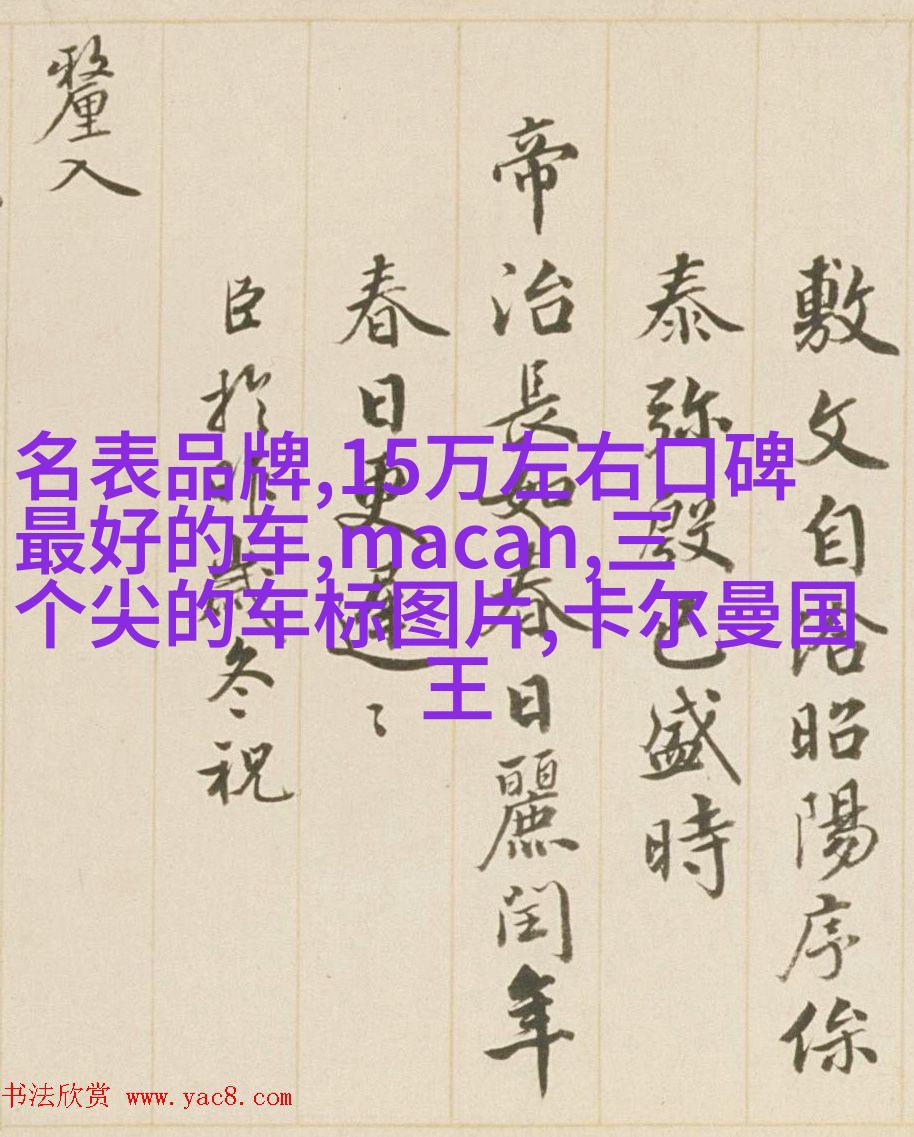 敷文自洽昭陽序偹
泰弥殷已盛時
帝治長如春日麗閏年
春日更遲〻
臣於昨歲冬祝
釐入
名表品牌,15万左右口碑
最好的车,macan,三
个尖的车标图片,卡尔曼国
王
书法欣赏 www.yac8.com